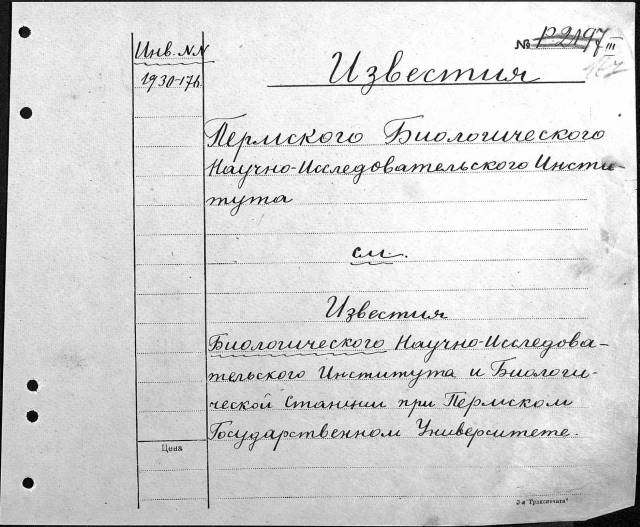 Инв. NN
1930-176
№ Р2197 III
Известия
Пермского Биологического
Научно-Исследовательского Инсти-
тута
см.
Известия
Биологического Научно-Исследова-
тельского Института и Биологи-
ческой Станции при Пермском
Государственном Университете.
Цена